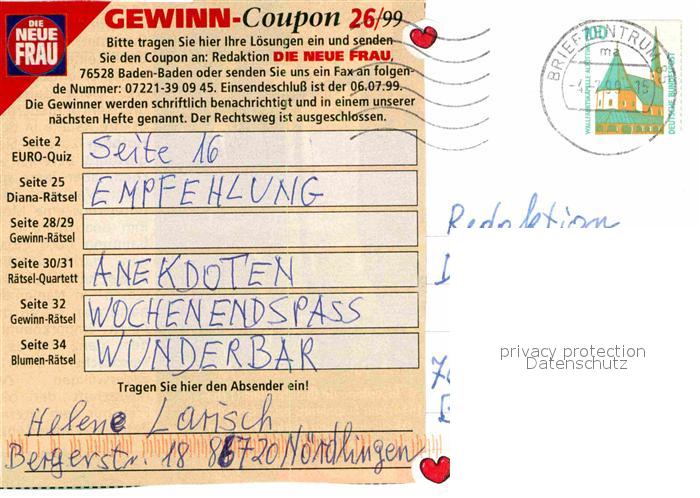 DIE
NEUE
FRAU
GEWINN-Coupon 26/99
Bitte tragen Sie hier Ihre Lösungen ein und senden
Sie den Coupon an: Redaktion DIE NEUE FRAU,
76528 Baden-Baden oder senden Sie uns ein Fax an folgen-
de Nummer: 07221-39 09 45. Einsendeschluß ist der 06.07.99.
Die Gewinner werden schriftlich benachrichtigt und in einem unserer
nächsten Hefte genannt. Der Rechtsweg ist ausgeschlossen.
Seite 2
EURO-Quiz
Seite 16
Seite 25
Diana-Rätsel
EMPFEHLUNG
Seite 28/29
Gewinn-Rätsel
Seite 30/31
Rätsel-Quartett
ANEKDOTEN
Seite 32
Gewinn-Rätsel
WOCHENENDSPASS
Seite 34
Blumen-Rätsel
WUNDERBAR
Tragen Sie hier den Absender ein!
Helene Larisch
Bergerstr. 18 86720 Nördlingen
BRIEFZENTRUM
ma
100
DEUTSCHE BUNDESPOST
Redaktion
privacy protection
Datenschutz